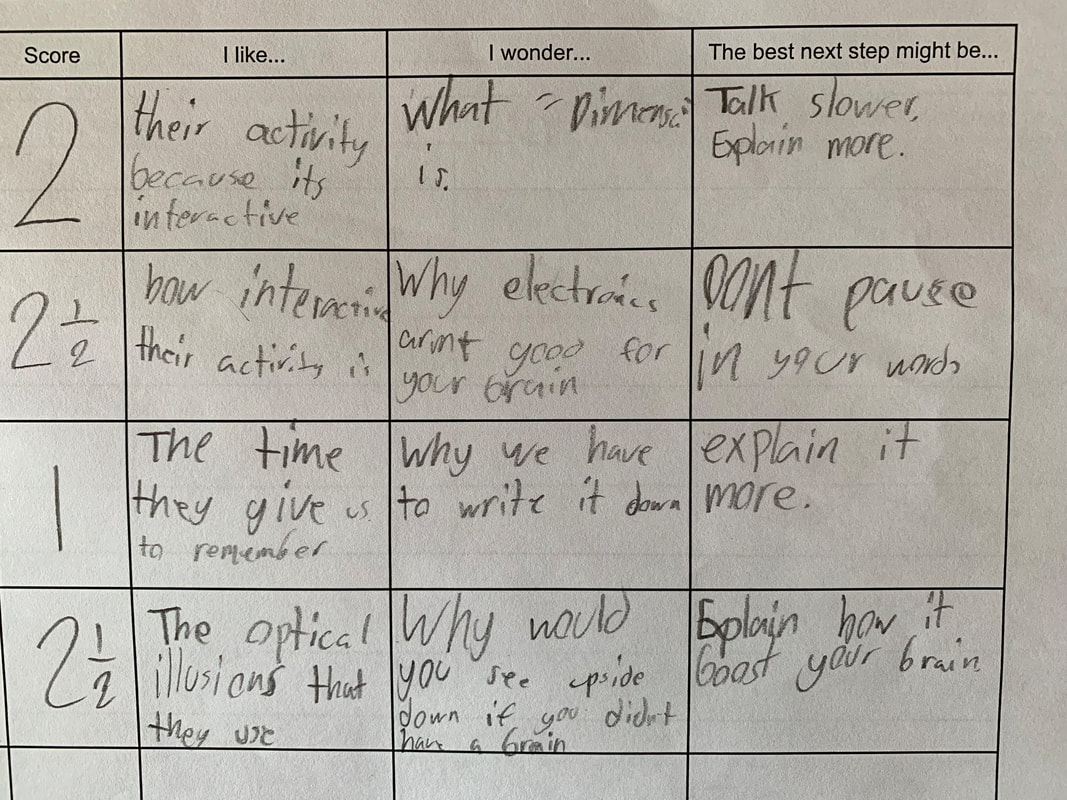 Score
I like...
I wonder...
The best next step might be...
2
their activity
because its
interactive
What
is.
Talk slower,
Explain more.
2 1/2
how interactive
their activity is
Why electronics
arnt good for
your brain
DONt pause
in your words
1
The time
they give us
to remember
Why we have
to write it down
explain it
more.
2 1/2
The optical
illusions that
they use
Why would
you see upside
down if you didnt
have a brain
Explain how it
boost your brain